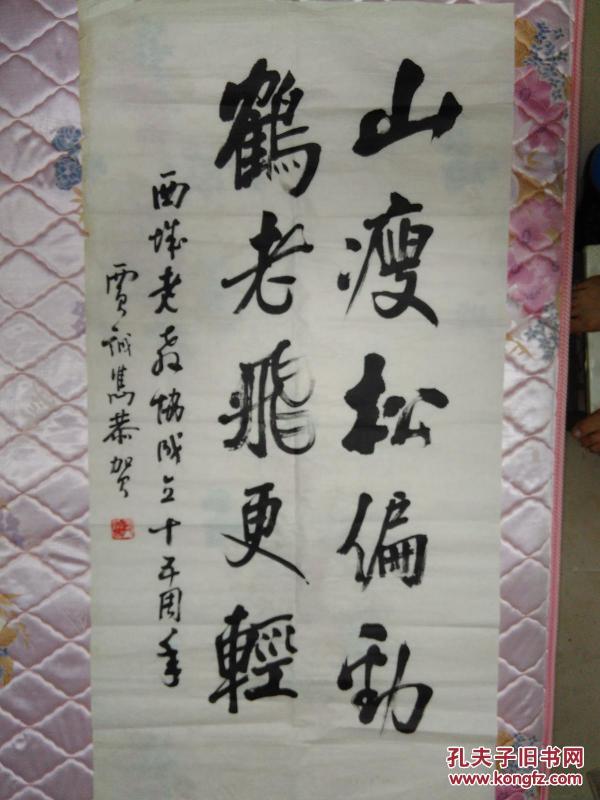 山瘦松偏劲
鶴老飛更輕
西城老教协成立十五周年
贾诚隽恭贺
孔夫子旧书网
www.kongfz.com